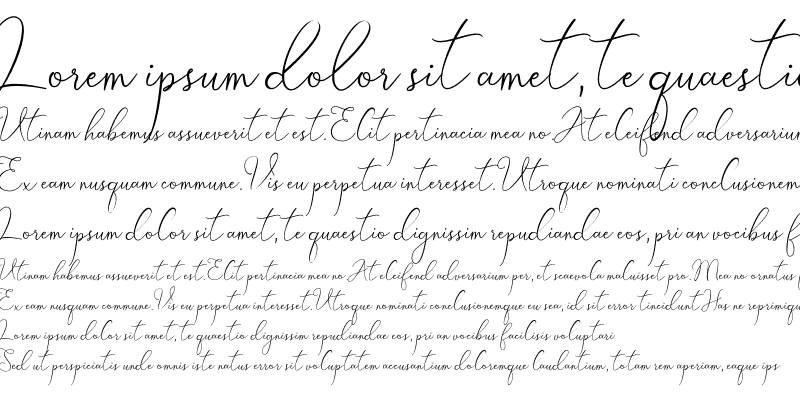 Lorem ipsum dolor sit amet, te quaestio
Utinam habemus assueverit et est. Elit pertinacia mea no. At eleifend adversarium
Ex eam nusquam commune. Vis eu perpetua interesset. Utroque nominati conclusionem
Lorem ipsum dolor sit amet, te quaestio dignissim repudiandae eos, pri an vocibus f
Utinam habemus assueverit et est. Elit pertinacia mea no. At eleifend adversarium per, et scaevola maluisset pro. Mea no ornatus
Ex eam nusquam commune. Vis eu perpetua interesset. Utroque nominati conclusionemque eu sea, id sit error tincidunt. Has ne reprimiqu
Lorem ipsum dolor sit amet, te quaestio dignissim repudiandae eos, pri an vocibus facilisis voluptari
Sed ut perspiciatis unde omnis iste natus error sit voluptatem accusantium doloremque laudantium, totam rem aperiam, eaque ips